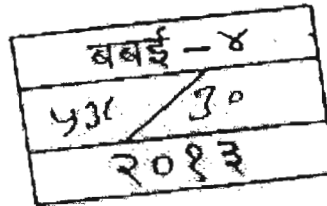 बबई - ४
५३८ / ३०
२०१३